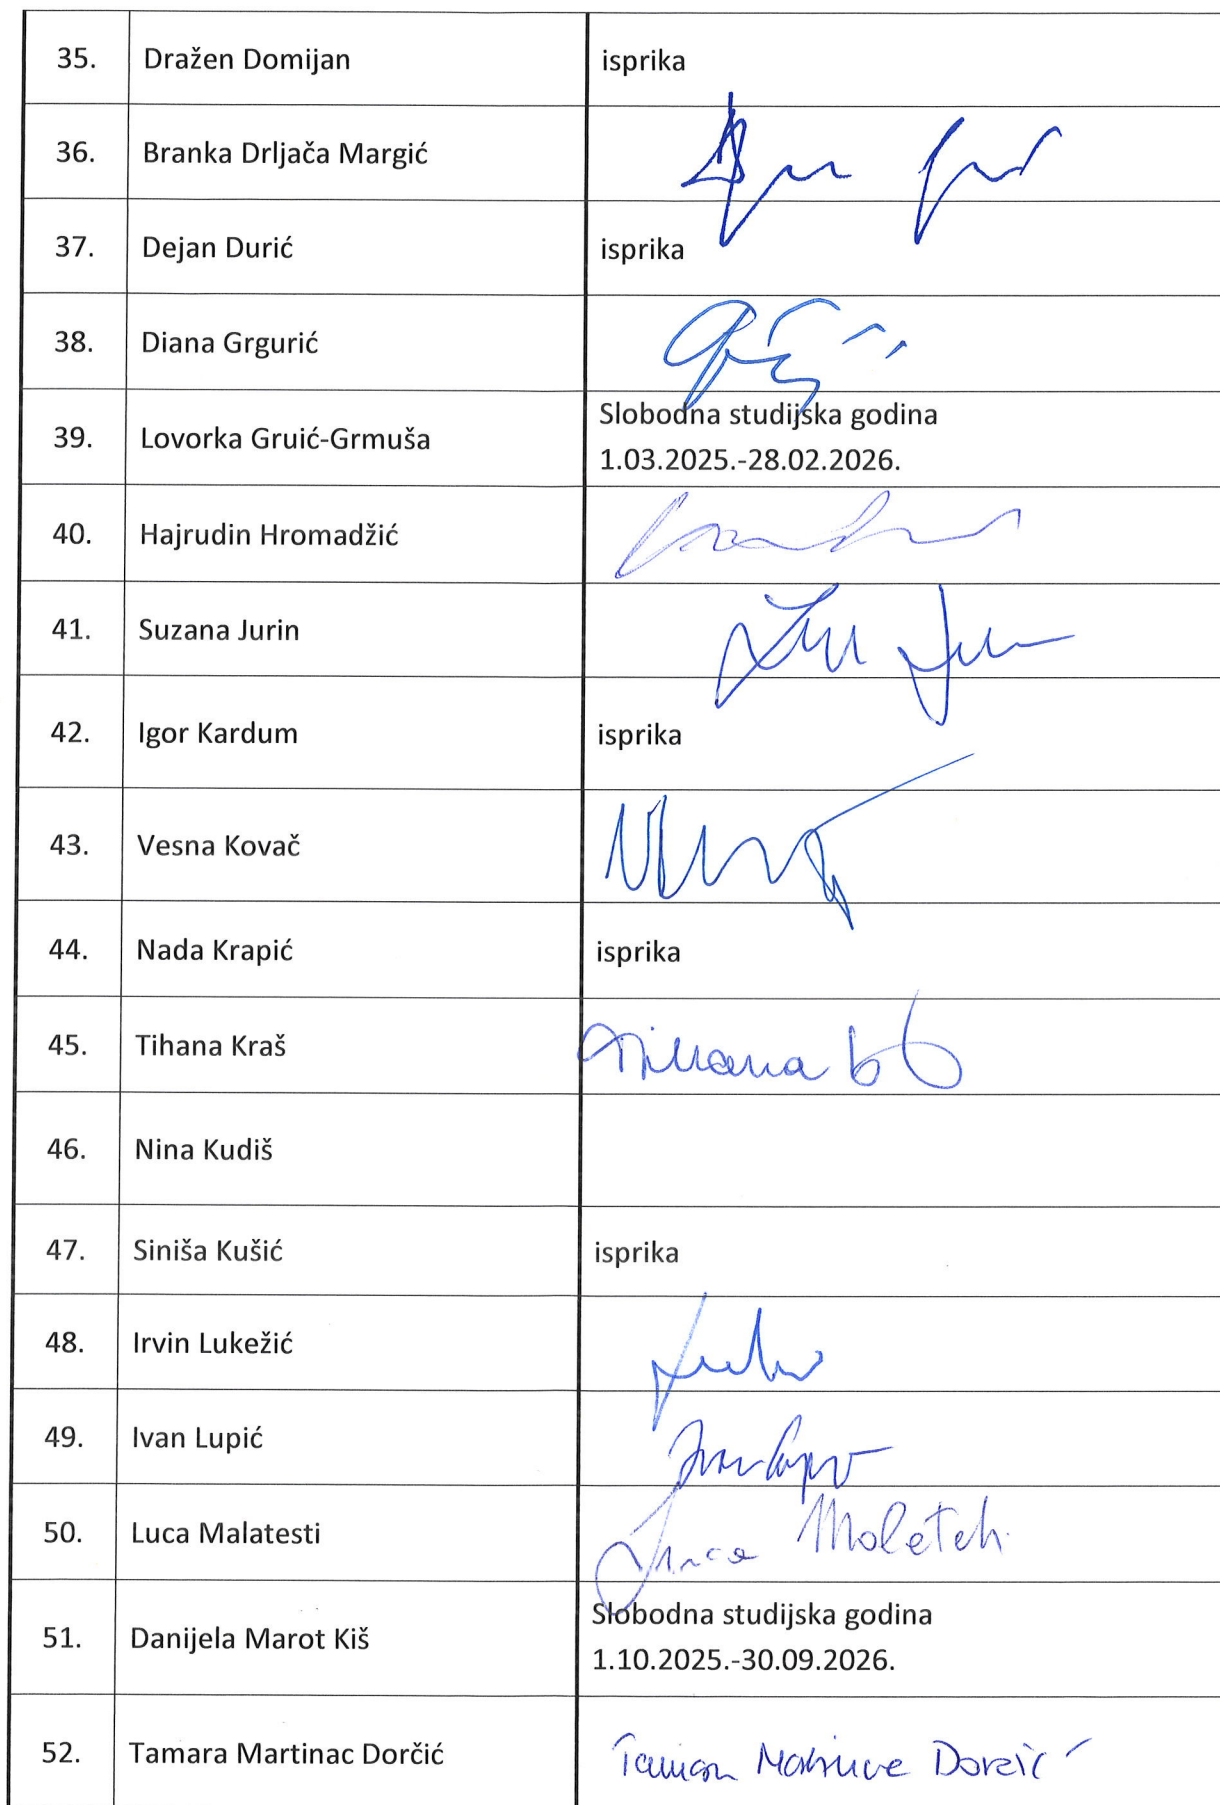 35. Dražen Domijan isprika
36. Branka Drljača Margić
37. Dejan Durić isprika
38. Diana Grgurić
39. Lovorka Gruić-Grmuša Slobodna studijska godina
1.03.2025.-28.02.2026.
40. Hajrudin Hromadžić
41. Suzana Jurin
42. Igor Kardum isprika
43. Vesna Kovač
44. Nada Krapić isprika
45. Tihana Kraš Tihana
46. Nina Kudiš
47. Siniša Kušić isprika
48. Irvin Lukežić
49. Ivan Lupić
50. Luca Malatesti Luca
51. Danijela Marot Kiš Slobodna studijska godina
1.10.2025.-30.09.2026.
52. Tamara Martinac Dorčić Dorčić